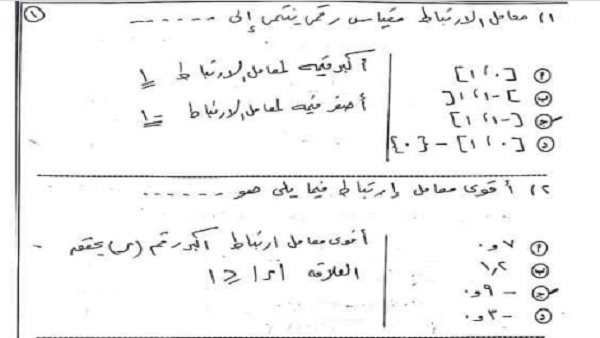 ١) معامل الارتباط مقياس رقمى ينتمى إلى ------
①
أ [٠، ١]
ب ]-١، ١[
ج [-١، ١]
د [٠، ١] - {٠}
أكبر قيمه لمعامل الارتباط ١
أصغر قيمه لمعامل الارتباط -١
٢) أقوى معامل إرتباط فيما يلى هو ------
أ ٧و٠
ب ١,٢
ج - ٩و٠
د - ٣و٠
أقوى معامل ارتباط اكبر رقم (س) يحققه
العلاقه |س| ≤ ١